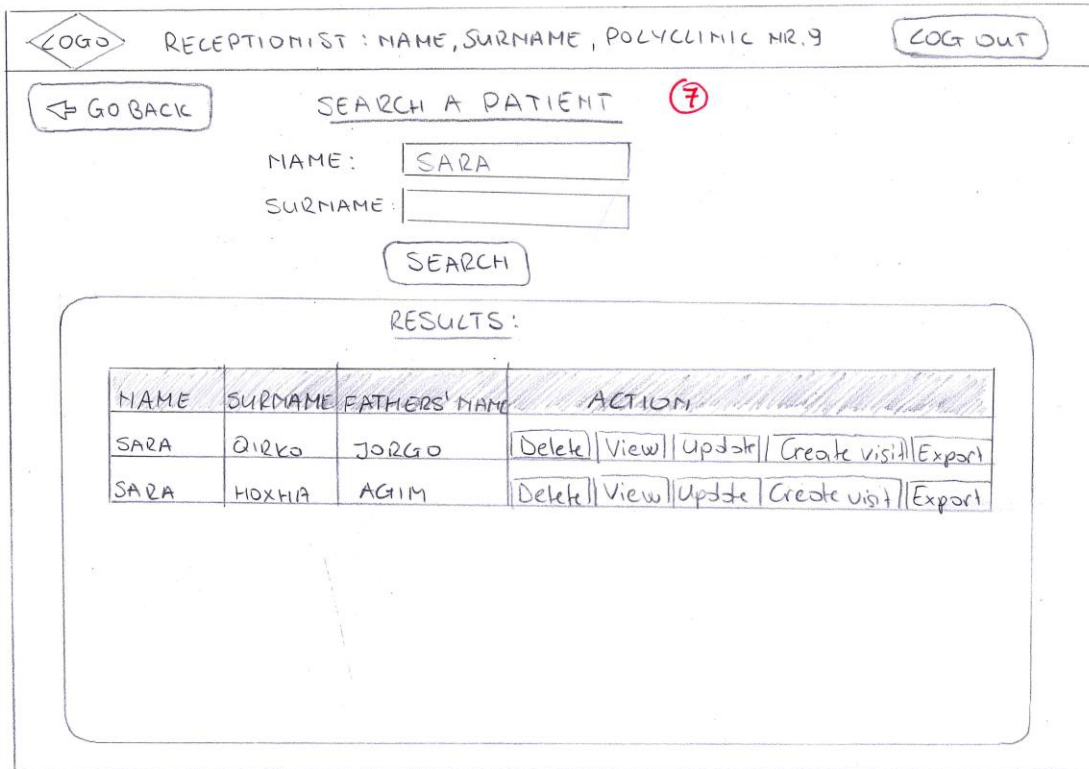 LOGO RECEPTIONIST : NAME, SURNAME, POLYCLINIC NR.9 LOG OUT
GO BACK SEARCH A PATIENT 7
NAME: SARA
SURNAME:
SEARCH
RESULTS:
NAME SURNAME FATHERS' NAME ACTION
SARA QIRKO JORGO Delete View Update Create visit Export
SARA HOXHA AGIM Delete View Update Create visit Export